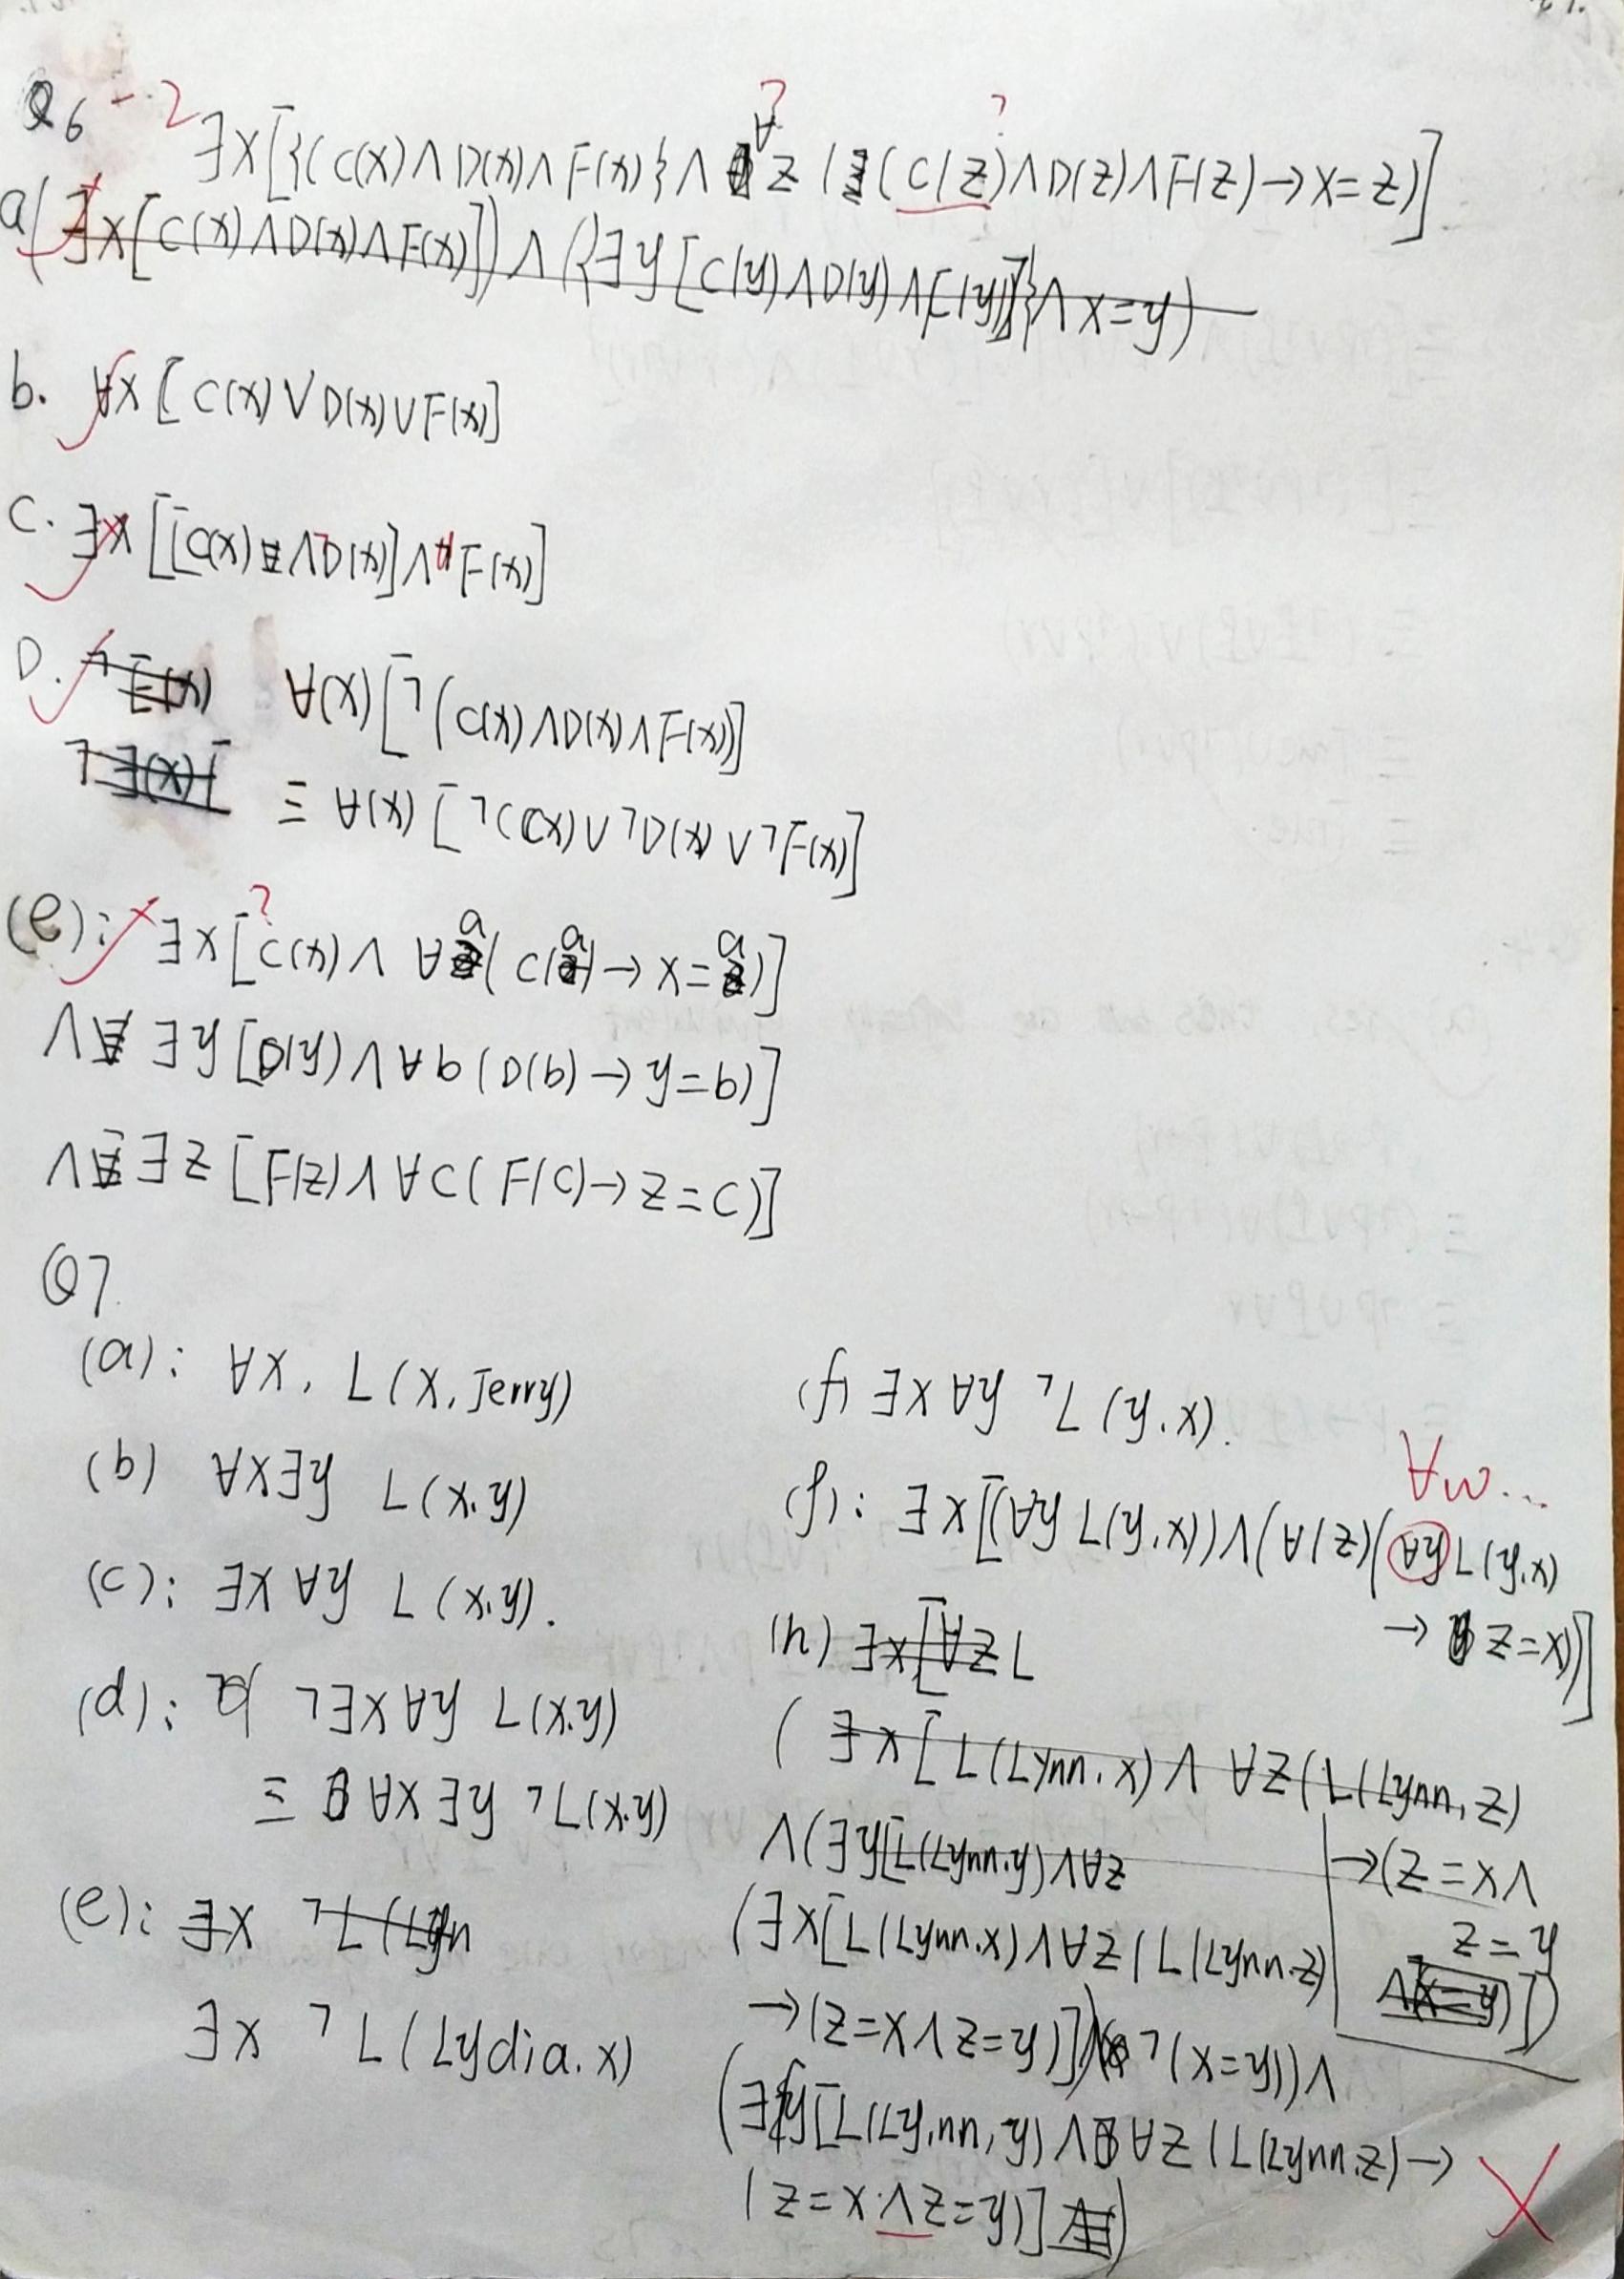 Q6 - 2
? ?
∃x[{(C(x)∧D(x)∧F(x)}∧ ∀z ((C(z)∧D(z)∧F(z)→x=z)]
a(∃x[C(x)∧D(x)∧F(x)])∧({∃y[C(y)∧D(y)∧F(y)]}∧x=y)
b. ∀x[C(x)∨D(x)∨F(x)]
C. ∃x[[C(x)∧D(x)]∧F(x)]
D. ¬E(x) ∀(x)[¬(C(x)∧D(x)∧F(x))]
¬∃(x)[ ≡ ∀(x)[¬C(x)∨¬D(x)∨¬F(x)]
(e): ∃x[C(x)∧ ∀a(C(a)→x=a)]
?
∧ ∃y[D(y)∧∀b(D(b)→y=b)]
∧ ∃z[F(z)∧∀C(F(C)→z=C)]
Q7
(a): ∀x, L(x, Jerry)
(b) ∀x∃y L(x,y)
(c): ∃x∀y L(x,y).
(d): ¬∃x∀y L(x,y)
≡ ∀x∃y ¬L(x,y)
(e): ∃x ¬L(Lyn
∃x ¬L(Lydia, x)
(f) ∃x∀y ¬L(y,x).
∀w...
(f): ∃x[(∀y L(y,x))∧(∀(z)(∀y L(y,x)
→ z=x)]
(h) ∃x[∀z L
(∃x[L(Lynn, x)∧ ∀z(L(Lynn, z)
→(z=x∧
z=y
∧(x=y)])
∧(∃y[L(Lynn,y)∧∀z
(∃x[L(Lynn,x)∧∀z(L(Lynn,z)
→(z=x∧z=y)])¬(x=y))∧
(∃y[L(Ly,nn,y)∧∀z(L(Lynn,z)→
(z=x∧z=y)])